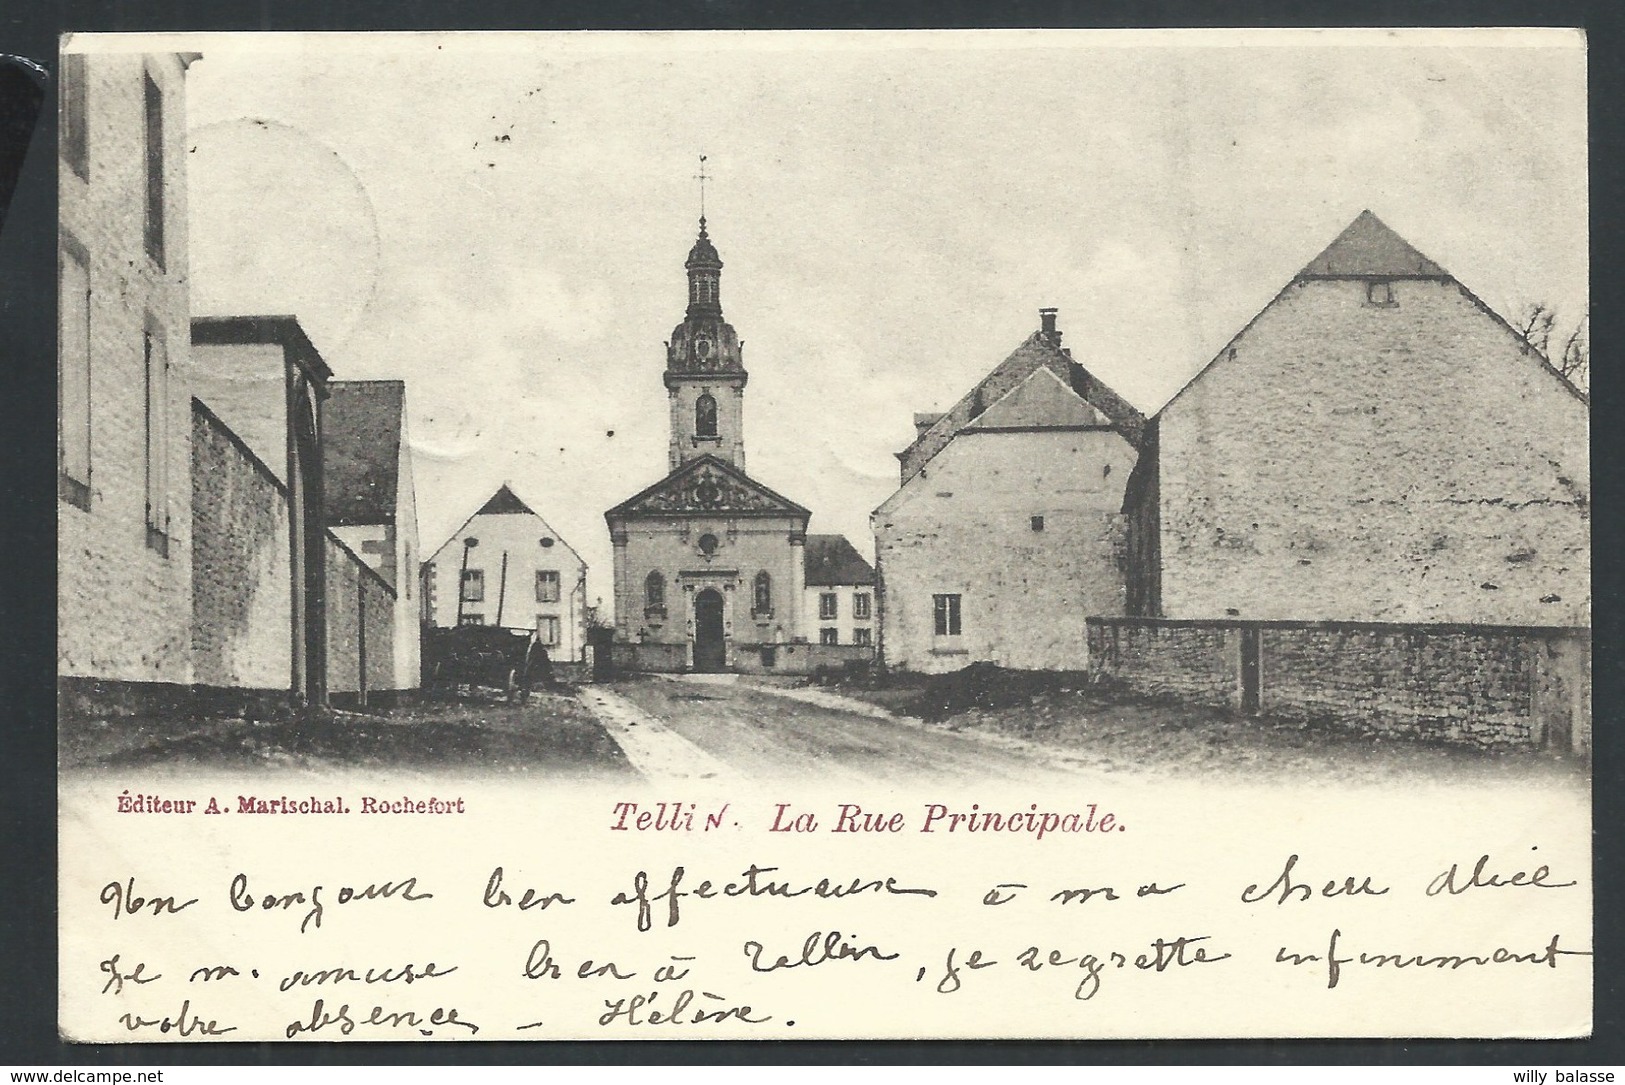 Éditeur A. Marischal. Rochefort
Tellin. La Rue Principale.
Un bonjour bien affectueux à ma chère Alice
Je m'amuse bien à Tellin, je regrette infiniment
votre absence, – Hélène.
willy balasse